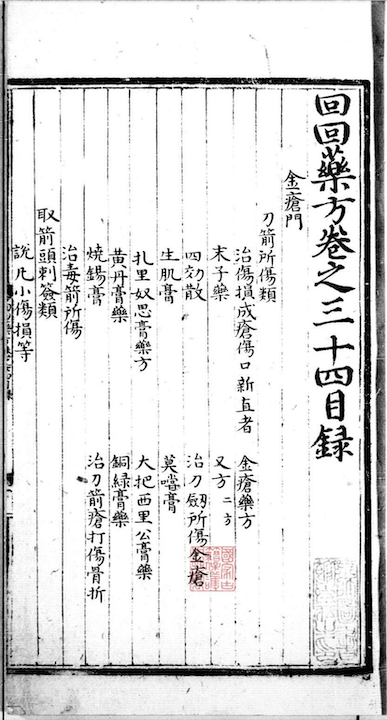 回回藥方卷之三十四目録
金瘡門
刀箭所傷類
治傷損成瘡傷口新直者 金瘡藥方
末子藥 又方二方
四効散 治刀劔所傷金瘡
生肌膏 莫噹膏
扎里奴思膏藥方 大把西里公膏藥
黄丹膏藥 銅緑膏藥
燒錫膏 治刀箭瘡打傷骨折
治毒箭所傷
取箭頭刺簽類
説凡小傷損等